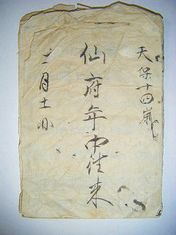 天保十四歳
仙府年中往来
二月